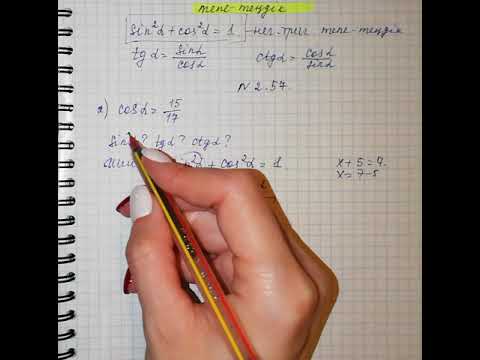 тепе-теңдік
sin²α + cos²α = 1 - нег. триг тепе-теңдік
tgα = sinα/cosα ctgα = cosα/sinα
N 2.57.
а) cosα = 15/17
sinα? tgα? ctgα?
sin²α + cos²α = 1.
x + 5 = 7.
x = 7-5